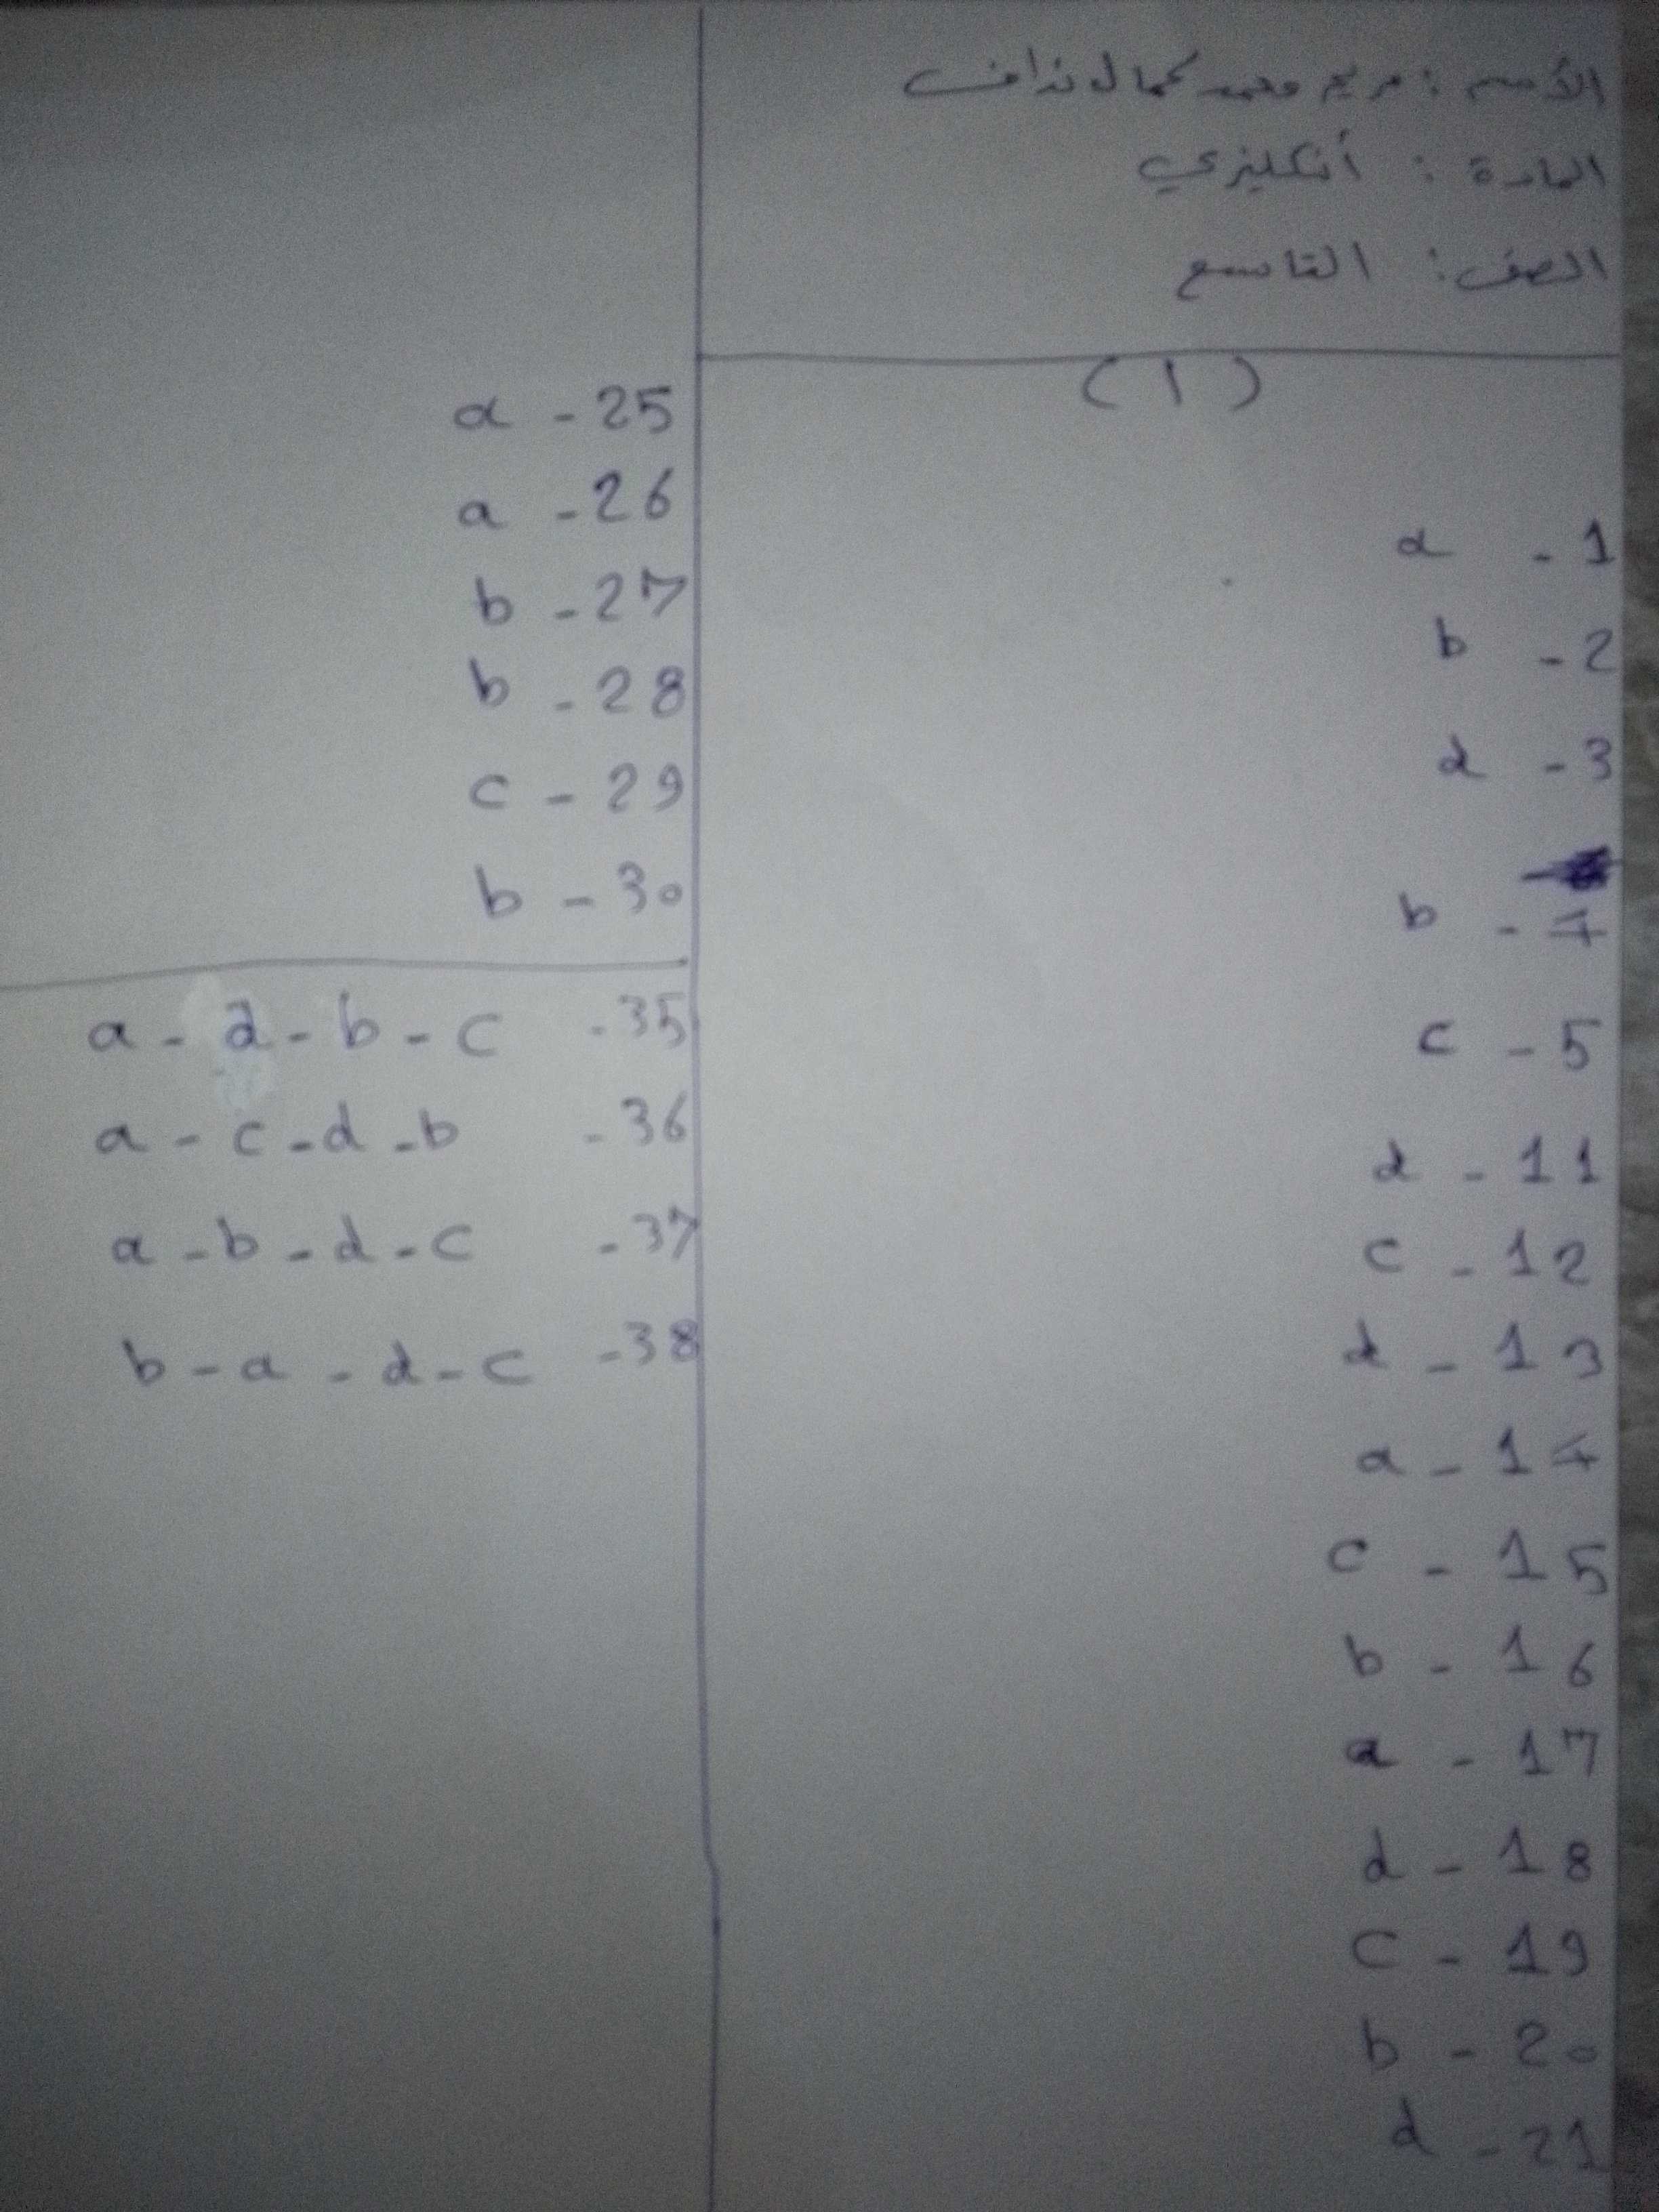 الأسم : مريم محمد كمال نداف
المادة : أنكليزي
الصف : التاسع
( 1 )
1 - a
2 - b
3 - d
4 - b
5 - c
11 - d
12 - c
13 - d
14 - a
15 - c
16 - b
17 - a
18 - d
19 - c
20 - b
21 - d
25 - a
26 - a
27 - b
28 - b
29 - c
30 - b
35 - a - d - b - c
36 - a - c - d - b
37 - a - b - d - c
38 - b - a - d - c